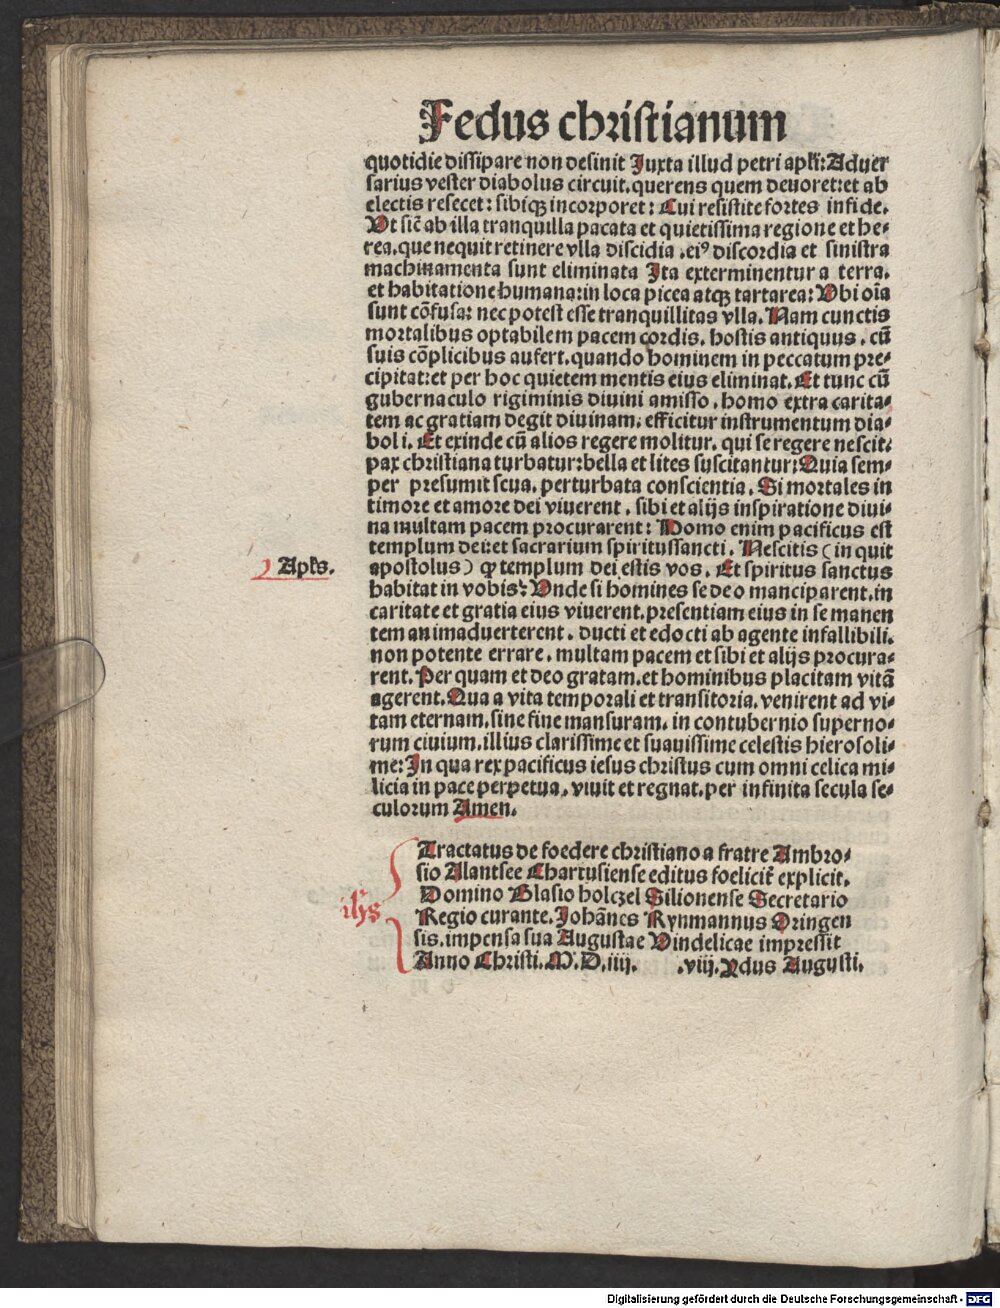 Fedus christianum
quotidie dissipare non desinit Juxta illud petri apłi: Aduer
sarius vester diabolus circuit. querens quem deuoret: et ab
electis resecet: sibiqꝫ incorporet: Cui resistite fortes in fide.
Vt sic̄ ab illa tranquilla pacata et quietissima regione ethe-
rea, que nequit retinere vlla discidia. eiꝰ discordia et sinistra
machinamenta sunt eliminata Ita exterminentur a terra.
et habitatione humana: in loca picea atqꝫ tartarea: Vbi oīa
sunt cōfusa: nec potest esse tranquillitas vlla. Nam cunctis
mortalibus optabilem pacem cordis. hostis antiquus. cū
suis cōplicibus aufert. quando hominem in peccatum pre-
cipitat: et per hoc quietem mentis eius eliminat. Et tunc cū
gubernaculo rigiminis diuini amisso. homo extra carita-
tem ac gratiam degit diuinam: efficitur instrumentum dia-
boli. Et exinde cū alios regere molitur. qui se regere nescit.
pax christiana turbatur: bella et lites suscitantur: Quia sem-
per presumit seua. perturbata conscientia. Si mortales in
timore et amore dei viuerent. sibi et alijs inspiratione diui-
na multam pacem procurarent: Homo enim pacificus est
templum dei: et sacrarium spiritussancti. Nescitis (inquit
Apłs.
apostolus) ꝙ templum dei estis vos. Et spiritus sanctus
habitat in vobis: Vnde si homines se deo manciparent. in
caritate et gratia eius viuerent. presentiam eius in se manen
tem animaduerterent. ducti et edocti ab agente infallibili.
non potente errare. multam pacem et sibi et alijs procura-
rent. Per quam et deo gratam. et hominibus placitam vitā
agerent. Qua a vita temporali et transitoria. venirent ad vi-
tam eternam. sine fine mansuram. in contubernio superno-
rum ciuium. illius clarissime et suauissime celestis hierosoli-
me: In qua rex pacificus iesus christus cum omni celica mi-
licia in pace perpetua. viuit et regnat. per infinita secula se-
culorum Amen.
Tractatus de foedere christiano a fratre Ambro-
sio Alantsee Chartusiense editus foelicit̄ explicit.
Domino Blasio holczel Silionense Secretario
ihs
Regio curante. Johānes Rynmannus Oringen
sis. impensa sua Augustae Vindelicae impressit
Anno Christi. M.D.iiij. .viij. Ydus Augusti.
Digitalisierung gefördert durch die Deutsche Forschungsgemeinschaft - DFG